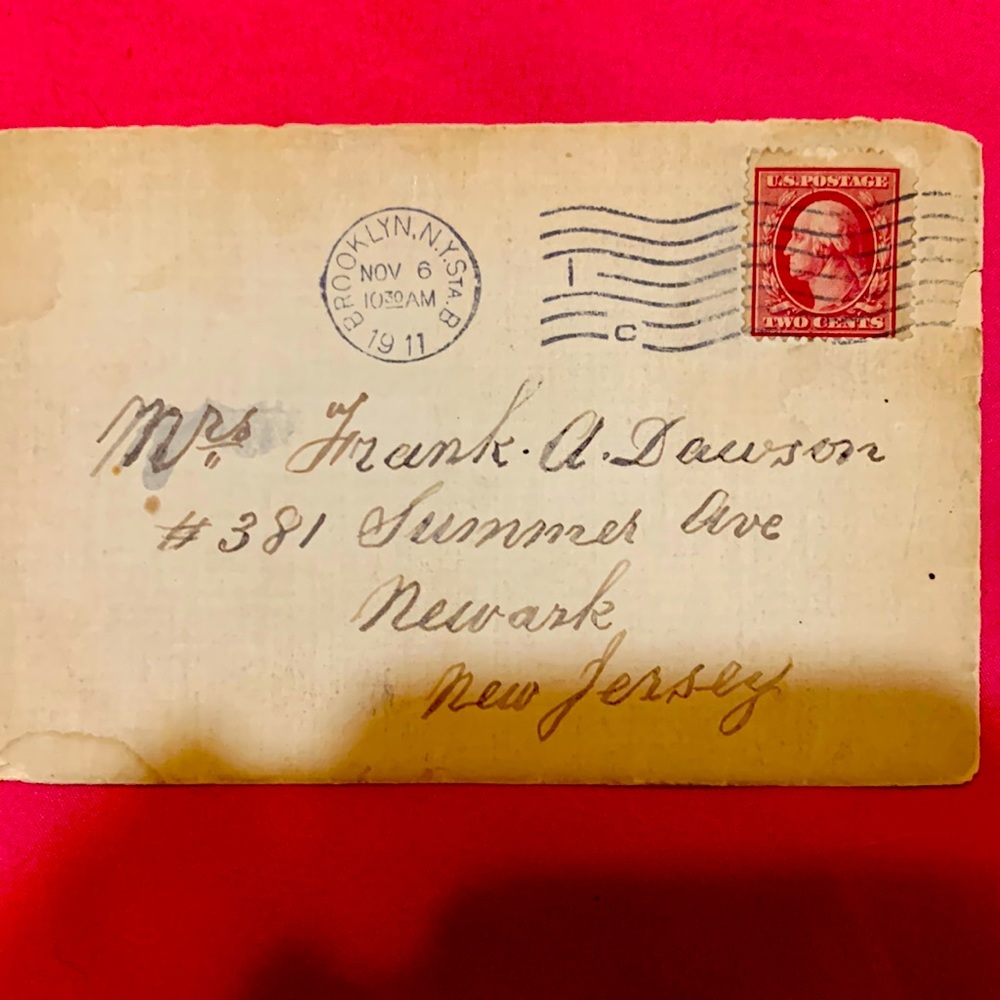 BROOKLYN, N.Y. STA. B
NOV 6
10 30 AM
1911
1
C
U.S. POSTAGE
TWO CENTS
Mrs Frank. A. Dawson
# 381 Summer Ave
Newark
New Jersey